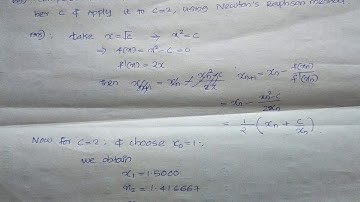 ber C & apply it to c=2, using Newton's Raphson method
take x=√c ⇒ x²=c
⇒ f(x)=x²-c=0
f'(x)=2x
then xn+1=xn-f(xn)/f'(xn)
=xn-(xn²-c)/2xn
=1/2(xn+c/xn)
Now for c=2, & choose x0=1,
we obtain
x1=1.5000
x2=1.416667